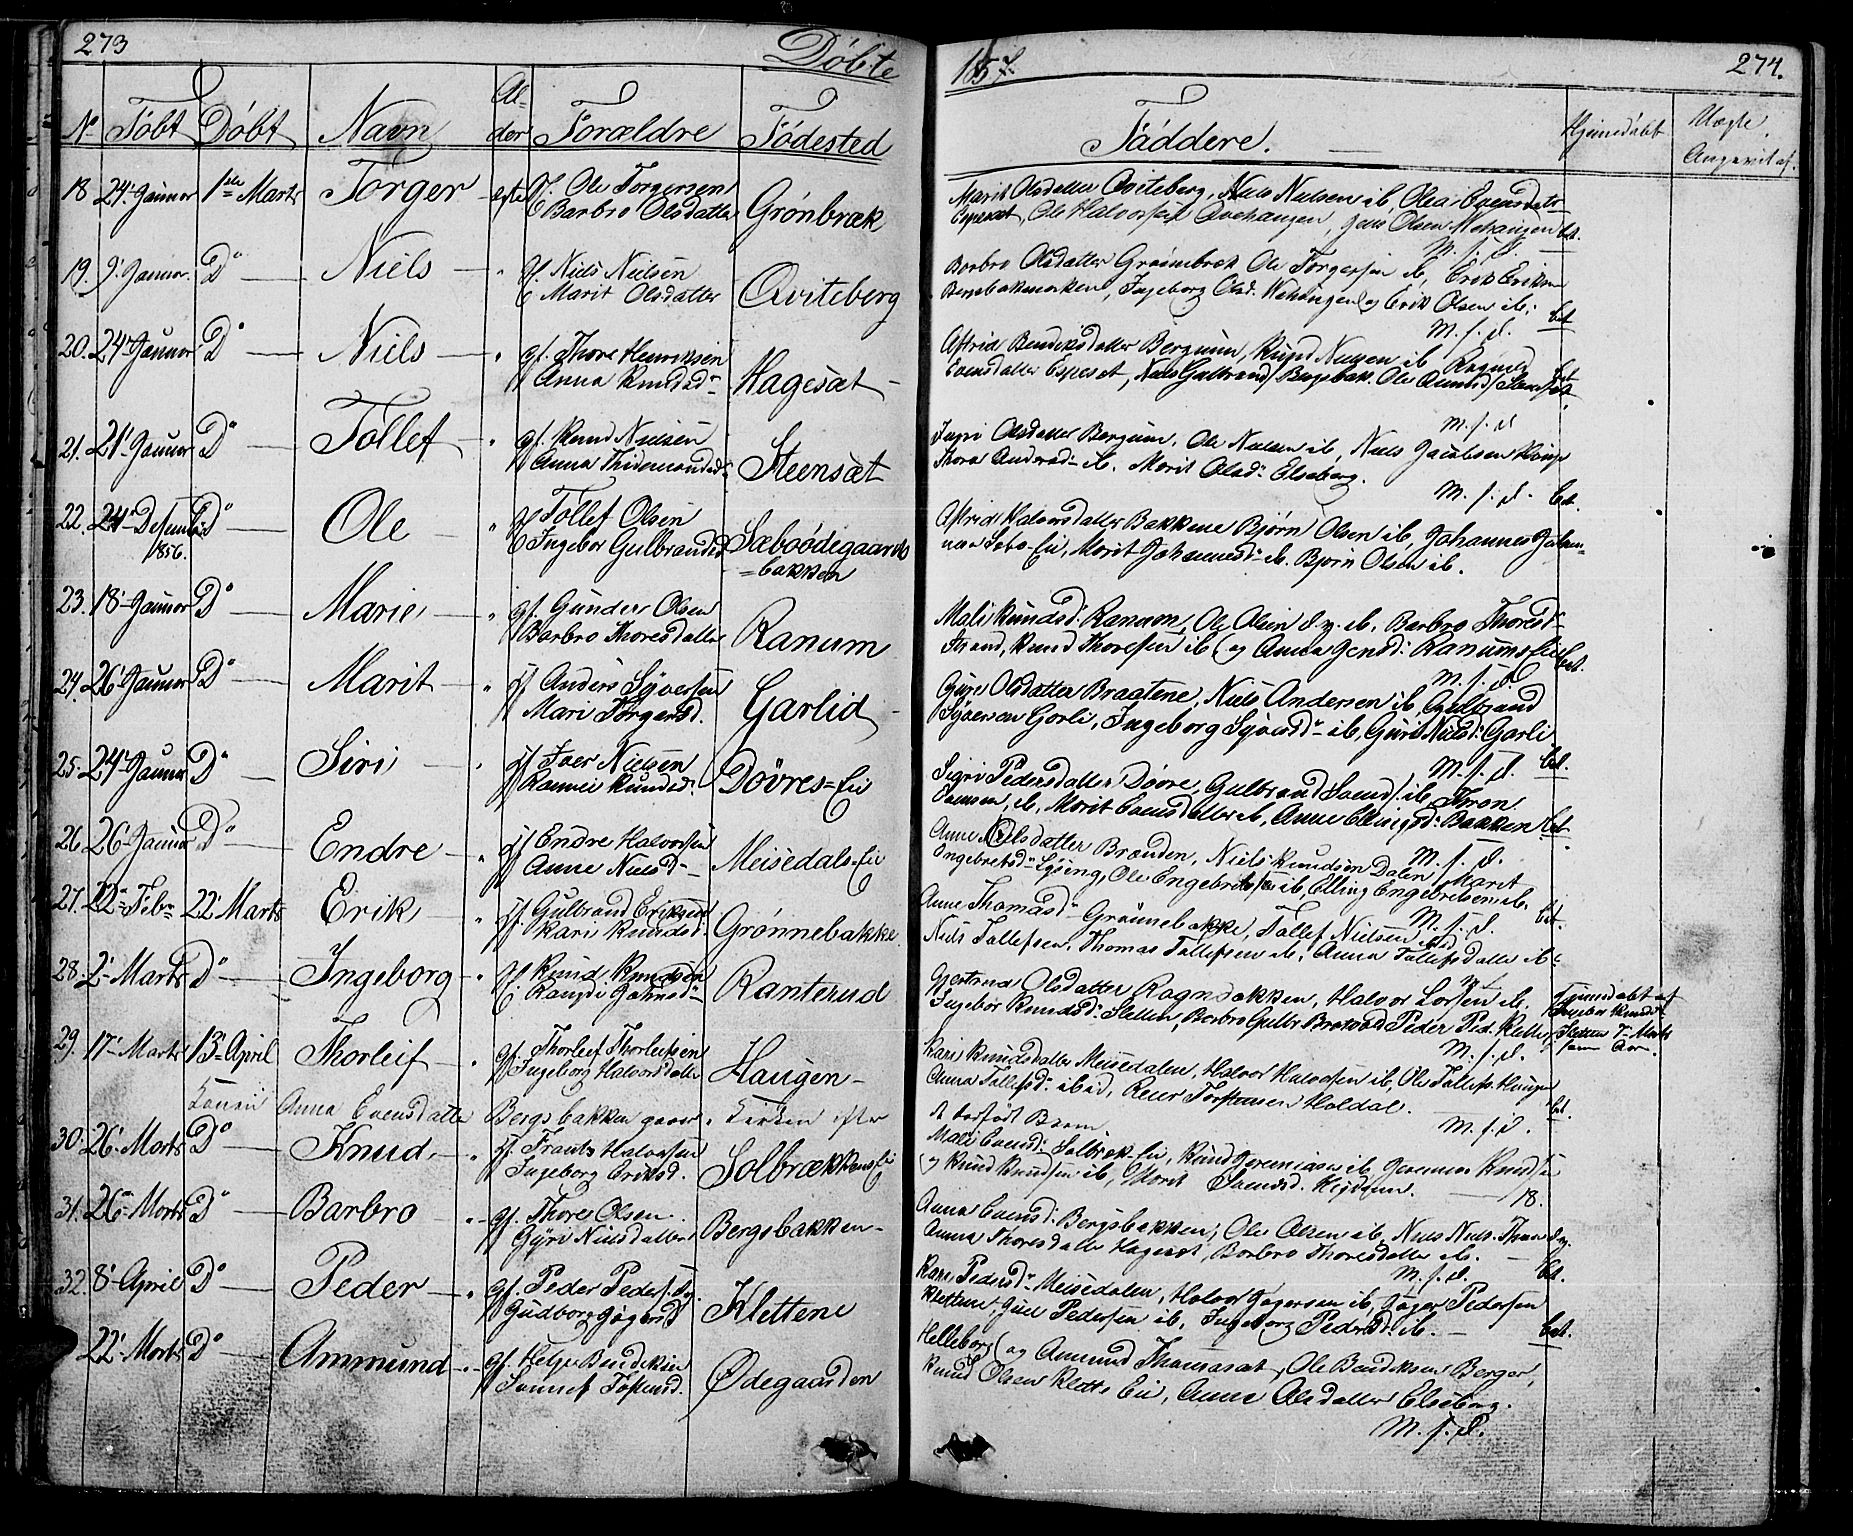 273
Döbte
No Födt Döbt Navn Al-
der Forældre Födested
18 24' Januar 1ste Marts Torger egte gf. Ole Torgersen
Barbro Olsdatter Grönbræk
19. 9' Januar. Do Niels " gf. Niels Nielsen
Marit Olsdatter Qviteberg
20. 24' Januar Do Niels " gf. Thore Henriksen
Anna Knudsd: Hagesæt
21. 21' Januar Do Tollef " gf. Knud Nielsen
Anna Thidemandsd: Steensæt
22. 24' Desember Do Ole " gf. Tollef Olsen
1856. Ingebor Gulbrandsd Sæboödegaards
=bakken
23. 18' Januar Do Marie " gf. Gunder Olsen
Barbro Thoresdatter Ranum
24. 26' Januar Do Marit " gf Anders Syversen
Mari Torgersd. Garlid
25. 24' Januar Do Siri " gf Iver Nielsen
Rannei Knudsd: Dövres=Eie
26. 26' Januar Do Endre " gf Endre Halvorsen
Anne Nielsd: Meisedals Eie
27. 22' Febr 22' Marts Erik " gf Gulbrand Eriksen
Kari Knudsd. Grönnebakke
28. 2' Marts Do Ingeborg " gf. Knud Knudsen
Rangdi Johnsd: Ranterud
29. 17' Marts 13' April Thorleif " gf. Thorleif Thorleifsen
Ingeborg Halvorsdatter Haugen
Konen Anna Evensdatter Bergsbakken gaaer i Kirken efter
30. 26' Marts Do Knud " gf. Frants Halvorsen
Ingeborg Eriksd. Solbrækkens Ei
31. 26' Marts Do Barbro " gf. Thore Olsen
Gyri Nielsdatter Bergsbakken
32. 8' April Do Peder " gf. Peder Peders.
Gudborg Jögersd Klettene
22' Marts Do Ammund " gf. Helge Bendiksen
Ödegaarden
1857. 274.
Fáddere. Hjemedöbt Uægte
Angevet af.
Marit Olsdatter Qviteberg, Niels Nielsen ib, Olea Evensdatr
Espesæt, Ole Halvorsen Qvehaugen, Jens Olsen Wehaugen bet.
M. f. d.
Barbro Olsdatter Grönnbræk Ole Torgersen ib, Erik Eriksen
Bergsbakmarken, Ingeborg Olsd. Wehaugen og Erik Olsen ib. bet
M. f. d.
Astrid Bendiksdatter Bergum, Knud Nielsen ib Ragnild
Evensdatter Espeset, Niels Gulbrands. Bergsbak. Ole Amunds. bet
M. f. d
Ingri Olsdatter Bergum, Ole Nielsen ib, Niels Jacobsen
Thora Andersd: ib. Marit Olsd: Elseberg.
M. f. d. bet.
Astrid Halvorsdatter Bakkene Björn Olsen ib, Johannes Johan-
Sebo Eie, Marit Johannesd: ib. Björn Olsen ib.
Mali Knudsd: Ranum, Ole Olsen d. y. ib. Barbro Thoresd:
Strand, Knud Thoresen ib og Anna Jensd: Ranums Eie bet.
M. f. d.
Gúri Olsdatter Braatene, Niels Andersen ib, Gulbrand
Syversen Garli, Ingeborg Syversd: ib, Guri Nilsd: Garli
M. f. d. bet.
Sigri Pedersdatter Dövre, Gulbrand Svends. ib Thron
Svensen, ib, Marit Evensdatter ib, Anne Ellingsd: Bakken bet
M. f. d.
Anne Olsdatter Brænden, Niels Knudsen Dalen Marit
Engebretsd: Lysing, Ole Engebretsen ib, Elling Engebretsen ib.
M. f. d. bet.
Anne Thomasd: Grönnebakke, Tollef Nielsen ibid
Niels Tollefsen, Thomas Tollefsen ib, Anna Tollefsdatter ib.
Gjertrud Olsdatter Ragndokken, Halvor Larsen ib. Hjemdöbt af
Ingebor Knudsd: Sletten, Barbro Gulbr. Bratvold Peder Ped. Klette Ingebor Knudsd:
M. f. d. Sletten 7 Marts
Kari Knudsdatter Meisedalen, Halvor Halvorsen ib, Ole Tollefs. Haugen
Anna Tollefsd: ibid, Reier Torstensen Holdal. bet.
M. f. d.
et dödfödt Barn.
Mali Evensd. Solbræk. Eie, Knud Jeremiasen ib, Gunnar Knudsen
og Knud Knudsen ib, Marit Svensd.
18.
Anna Evensd: Bergsbakken, Ole Olsen ib, Niels Niels. d. y.
Anna Thoresdatter Hagesæt, Barbro Thoresdatter ib. bet.
M. f. d.
Kari Pedersd: Meisedalen, Halvor Jögersen ib, Jöger Pedersen
Klettene, Guel Pedersen ib, Ingeborg Pedersd: ib. bet.
Helleborg og Ammund Thomasæt, Ole Bendiksen Berger,
Knud Olsen Klette Eie, Anne Olsdatter Elseberg.
M. f. d.